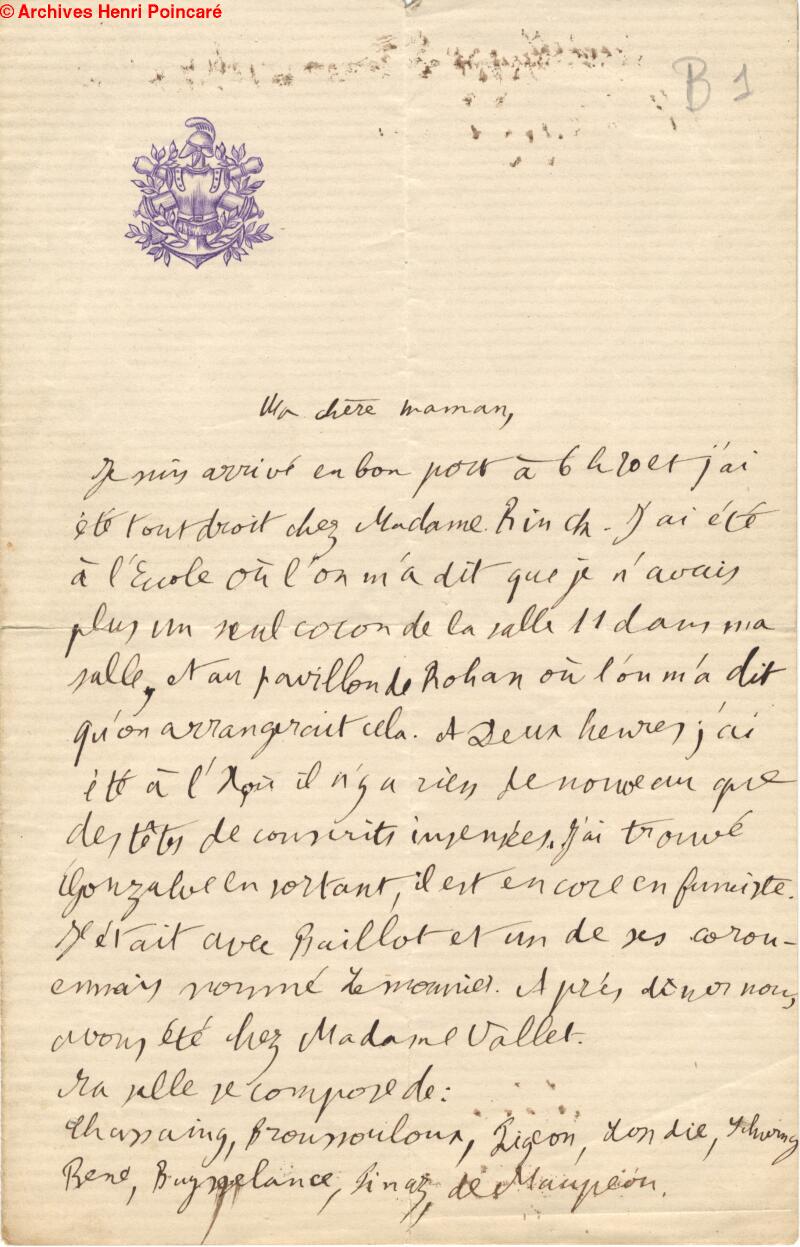 © Archives Henri Poincaré
B 1
Ma chère maman,
Je suis arrivé en bon port à 6 h 20 et j'ai
été tout droit chez Madame Rinck. J'ai été
à l'Ecole où l'on m'a dit que je n'avais
plus un seul cocon de la salle 11 dans ma
salle, et au pavillon de Rohan où l'on m'a dit
qu'on arrangerait cela. A Deux heures j'ai
été à l'X, où il n'y a rien de nouveau que
des têtes de conscrits insensées. J'ai trouvé
Gonzalve en sortant, il est encore en fumiste.
Il était avec Baillot et un de ses corou-
ennais nommé Lemonnier. Après dîner nous
avons été chez Madame Vallet.
Ma salle se compose de :
Chassaing, Broussouloux, Pigeon, 
René, Buysselance, Dinaz, de Maupéon.